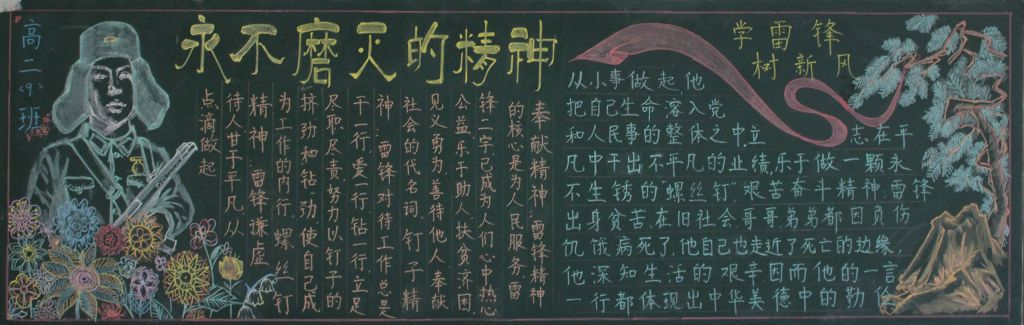 高二(9)班
永不磨灭的精神
奉献精神:雷锋精神
的核心是为人民服务,雷
锋二字已成为人们心中热心
公益,乐于助人,扶贫济困,
见义勇为,善待他人,奉献
社会的代名词。钉子精
神:雷锋对待工作,总是
干一行,爱一行,钻一行,立足
尽职尽责,努力以钉子的
挤劲和钻劲,使自己成
为工作的内行。螺丝钉
精神:雷锋谦虚
待人,甘于平凡,从
点滴做起
学雷锋
树新风
从小事做起,他
把自己生命溶入党
和人民事的整体之中,立志在平
凡中干出不平凡的业绩,乐于做一颗永
不生锈的"螺丝钉"艰苦奋斗精神:雷锋
出身贫苦,在旧社会哥哥弟弟都因负伤
饥饿病死了,他自己也走近了死亡的边缘,
他深知生活的艰辛因而他的一言
一行都体现出中华美德中的勤俭